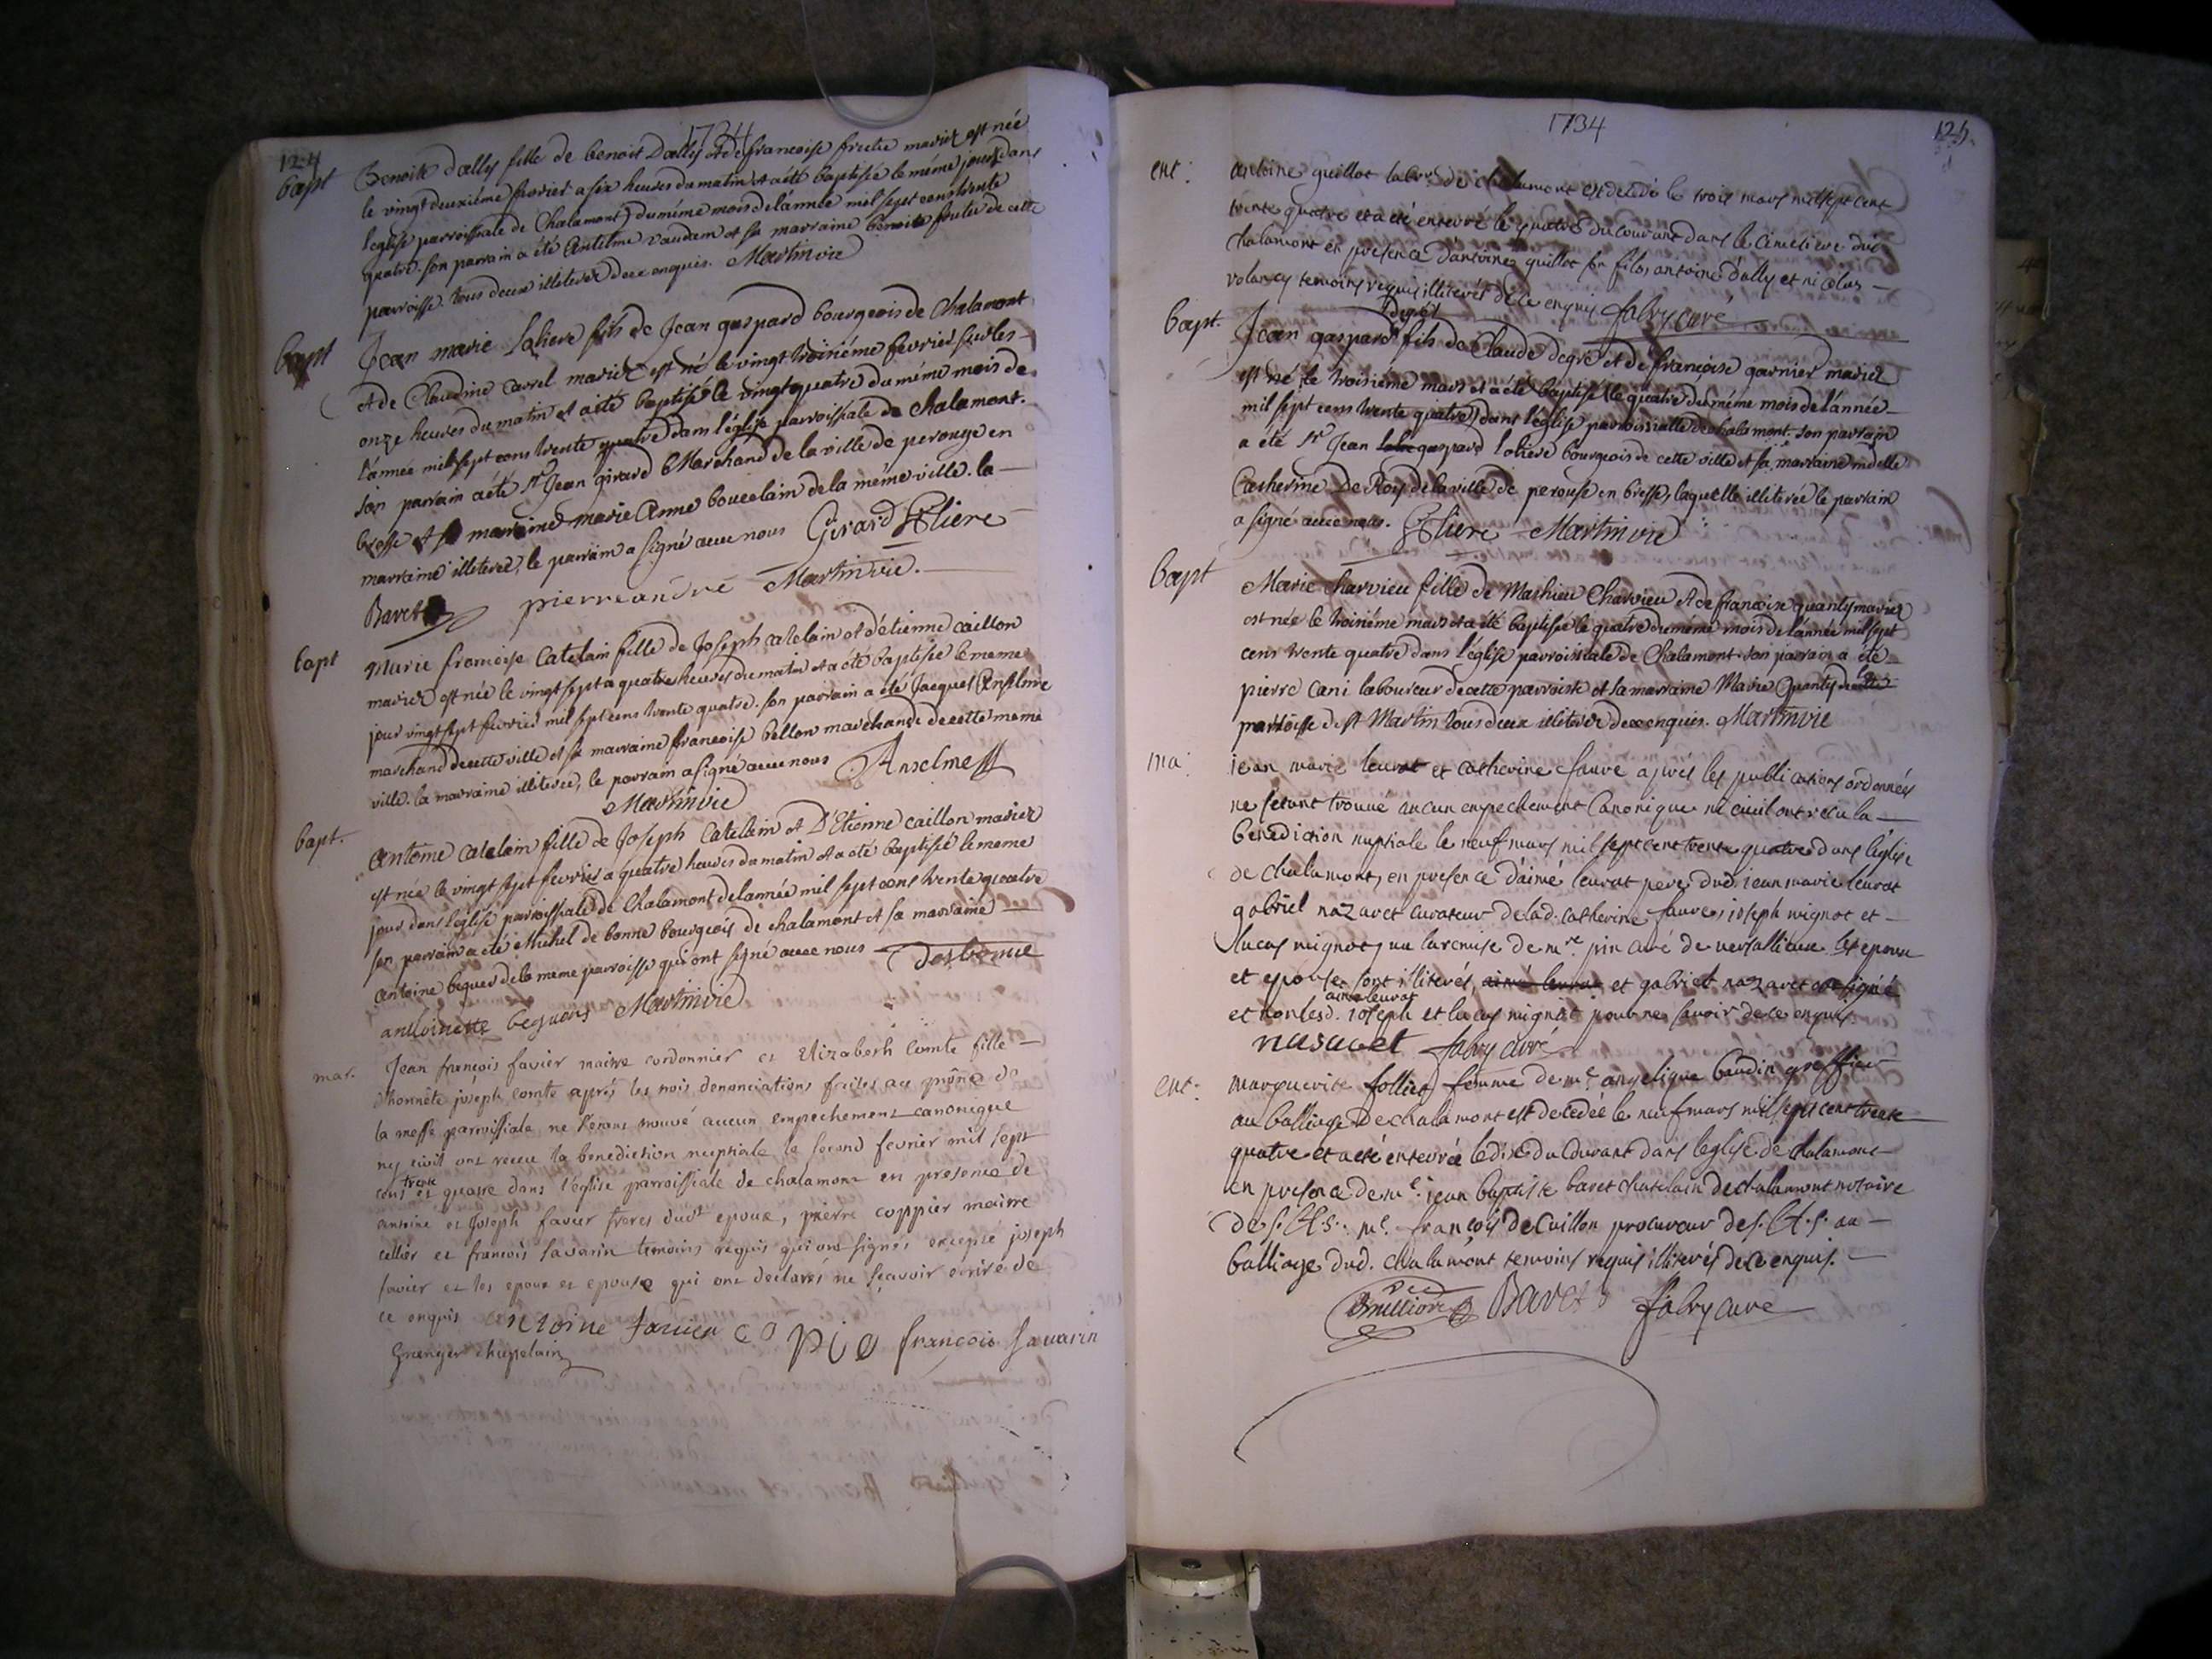 1734
124
bapt Benoite dally fille de benoit Dally et de francoise frutie mariez est née
le vingt deuxiéme fevrier a six heures du matin et a été baptisée le même jour dans
l'eglise parroissiale de Chalamont du même mois de l'année mil sept cens trente
quatre. son parrain a été Antelme vaudam et sa marraine benoite frutie de cette
parroisse. tous deux illiterez de ce enquis. Martinvie
bapt Jean marie Loliere fils de Jean gaspard bourgeois de Chalamont
et de Claudine carrel mariez est né le vingt troisiéme fevrier sur les
onze heures du matin et a été baptisé le vingt quatre du même mois de
l'année mil sept cens trente quatre dans l'église parroissiale de Chalamont.
son parrain a été sr Jean girard Marchand de la ville de perouge en
bresse et sa marraine marie Anne bouvelain de la même ville. la
marraine illiterée, le parrain a signé avec nous Girard Loliere
Baret pierre andré Martinvie.
bapt Marie francoise Catelain fille de Joseph catelain et d'etienne caillon
mariez est née le vingt sept a quatre heures du matin et a été baptisée le meme
jour vingt sept fevrier mil sept cens trente quatre. son parrain a été Jacques Anselme
marchand de cette ville et sa marraine francoise bellon marchande de cette meme
ville. la marraine illiterée, le parrain a signé avec nous Anselme
Martinvie
bapt. Antoine Catelain fille de Joseph Catelain et D'Etienne caillon mariez
est née le vingt sept fevrier a quatre heures du matin et a été baptisée le meme
jour dans l'eglise parroissiale de Chalamont de l'année mil sept cens trente quatre
son parrain a été Michel de bonne bourgeois de chalamont et sa marraine
antoine beques de la meme parroisse qui ont signé avec nous
anthoinette Martinvie
mar. Jean françois favier maitre cordonnier et Elizabeth Comte fille
d'honnête joseph comte aprés les trois denonciations faites au prône de
la messe parroissiale ne s'etans trouvé aucun empechement canonique
ny civil ont receu la benediction nuptiale le second fevrier mil sept
cens trente et quatre dans l'église parroissiale de chalamont en presence de
antoine et Joseph favier freres dudt epoux, pierre coppier maitre
cellier et francois Savarin temoins requis qui ont signés excepté joseph
favier et les epoux et epouse qui ont declarés ne sçavoir ecrire de
ce enquis Antoine favier copio françois Savarin
Grenger chapelain
1734
125
ent: antoine guillot labr. de chalamont est decedé le trois mars mil sept cent
trente quatre et a été enterré le quatre du courant dans le cimetiere dud
chalamont en presence d'antoine guillot son fils, antoine dally et nicolas
volancy temoins requis illiterés de ce enquis fabry curé
bapt. Jean gaspard fils de Claude degré et de françoise garnier mariez
est né le troisiéme mars et a été baptisé le quatre du même mois de l'année
mil sept cens trente quatre dans l'église parroissialle de chalamont. son parrain
a été sr Jean gaspard Loliere bourgeois de cette ville et sa marraine mdelle
Catherine De Roy de la ville de perouse en bresse, laquelle illiterée le parrain
a signé avec nous. Loliere Martinvie
bapt Marie Charvieu fille de Mathieu Charvieu et de francoise quanty mariez
est née le troisiéme mars et a été baptisée le quatre du meme mois de l'année mil sept
cens trente quatre dans l'église parroissiale de Chalamont. son parrain a été
pierre cani laboureur de cette parroisse et sa marraine Marie Quanty de cette
parroisse de st Martin tous deux illiterez de ce enquis. Martinvie
ma. jean marie leurat et catherine fauve aprés les publications ordonnées
ne setant trouvé aucun empechement Canonique ni civil ont recu la
benediction nuptiale le neuf mars mil sept cent trente quatre dans l'eglise
de chalamont, en presence d'aimé leurat pere dud. jean marie leurat
gabriel nazaret curateur de lad. catherine fauve, joseph mignot et
lucas mignot, vu la remise de mre. pin curé de versallieux les epoux
et epouse sont illiterés, aimé leurat et gabriel nazaret ont signé
aimé leurat
et non lesd. joseph et lucas mignot pour ne savoir de ce enquis
nasaret fabry curé
ent: marguerite follied femme de me. angelique baudin greffier
au balliage de chalamont est decedée le neuf mars mil sept cent trente
quatre et a été enterrée le dix du courant dans l'eglise de chalamont
en presence de me. jean baptiste baret chatelain de chalamont notaire
de s. A. S. me. françois de Cuillon procureur de s. A. S. au
balliage dud. chalamont temoins requis illiterés de ce enquis.
Baret fabry curé